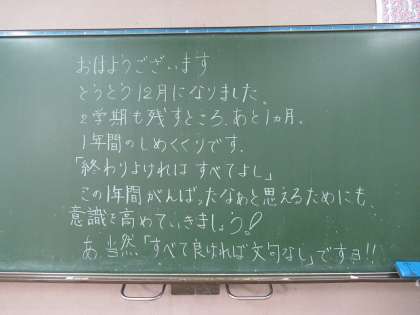 おはようございます
とうとう12月になりました。
2学期も残すところ、あと1ヵ月。
1年間のしめくくりです。
「終わりよければ すべてよし」
この1年間がんばったなぁと思えるためにも、
意識を高めていきましょう!
あ、当然「すべて良ければ文句なし」ですヨ!!